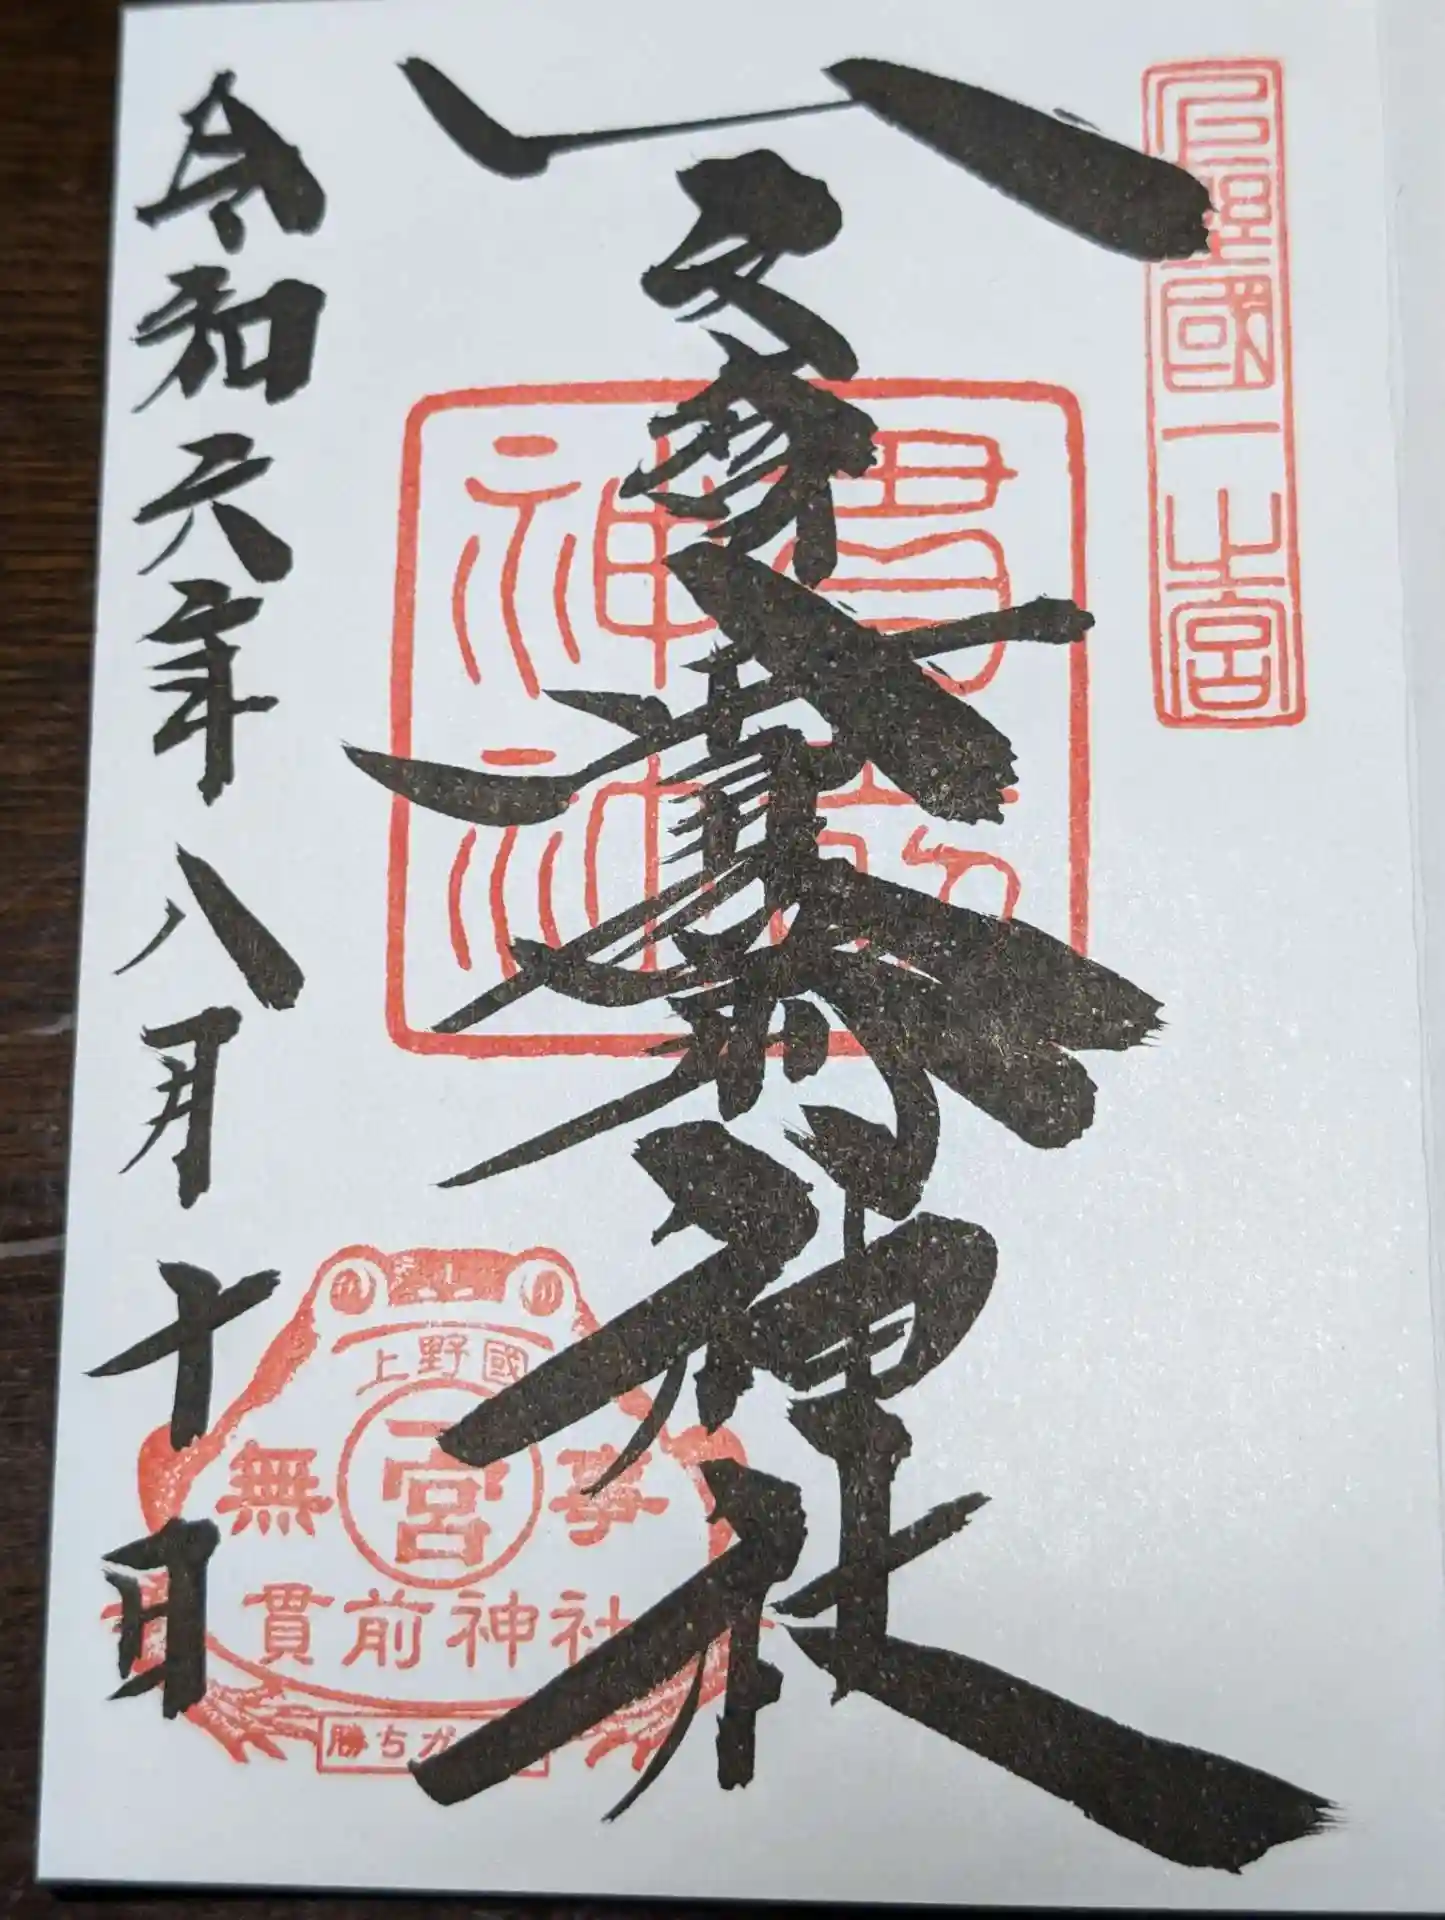 上野國一之宮
神社
貫前神社
令和六年八月十日
上野國
一宮
無事
貫前神社
勝ちが